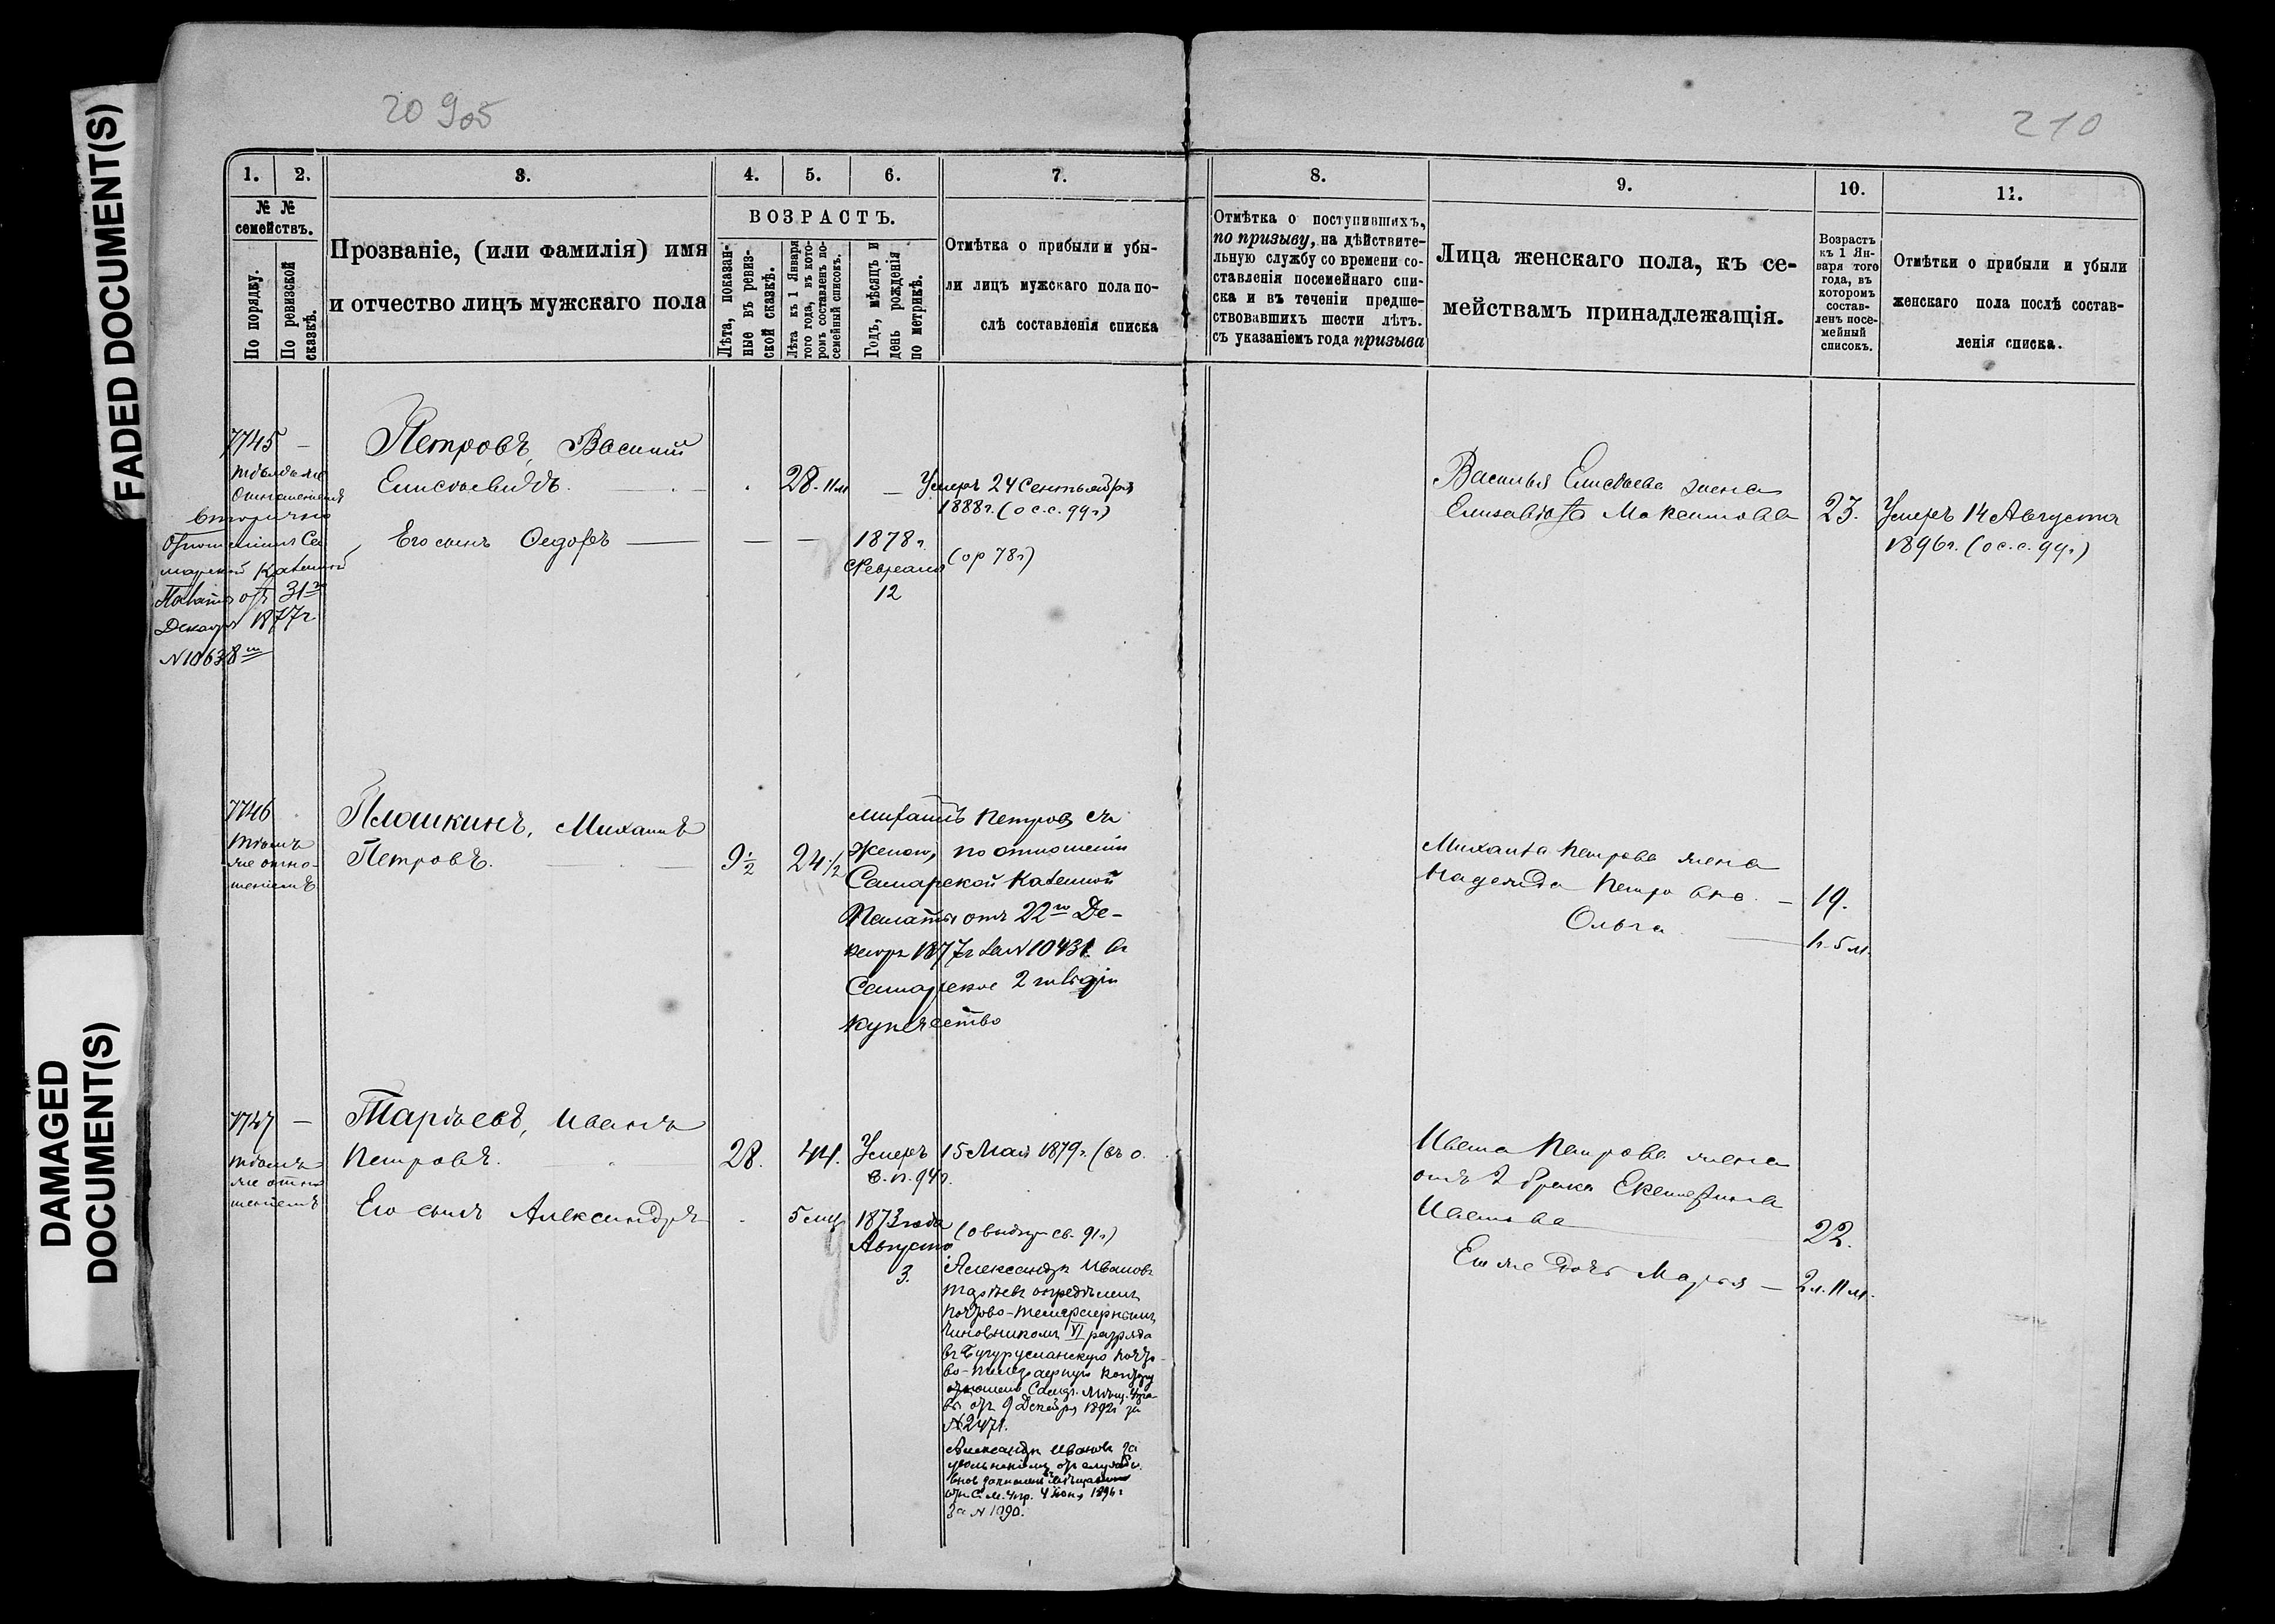 FADED DOCUMENT(S)
DAMAGED
DOCUMENT(S)
20 905
210
1.
2.
3.
4.
5.
6.
7.
8.
9.
10.
11.
№ №
семействъ.
По порядку.
По ревизской
сказкѣ.
Прозваніе, (или фамилія) имя
и отчество лицъ мужскаго пола
ВОЗРАСТЪ.
Лѣта, показан-
ные въ ревиз-
ской сказкѣ.
Лѣта къ 1 Января
того года, въ кото-
ромъ составленъ по-
семейный списокъ.
Годъ, мѣсяцъ и
день рожденія
по метрикѣ.
Отмѣтка о прибыли и убы-
ли лицъ мужскаго пола по-
слѣ составленія списка
Отмѣтка о поступившихъ,
по призыву, на дѣйствите-
льную службу со времени со-
ставленія посемейнаго спи-
ска и въ теченіи предше-
ствовавшихъ шести лѣтъ.
съ указаніемъ года призыва
Лица женскаго пола, къ се-
мействамъ принадлежащія.
Возрастъ
къ 1 Ян-
варя того
года, въ
которомъ
состав-
ленъ посе-
мейный
списокъ.
Отмѣтки о прибыли и убыли
женскаго пола послѣ состав-
ленія списка.
7745 —
тѣмъ же
отношеніемъ
вторично
Отношенія Са
марской Казенной
Палаты отъ 31го
Декабря 1877г
№10638
Петровъ, Василій
Елисѣевичъ.
28. 11м
Умеръ 24 Сентября
1888г. (о с.с. 99г)
Его сынъ Ѳедоръ — — —
1878г.
Февраля
12
(ор 78г)
Василья Елисѣева жена
Елизавѣта Максимова
23.
Умеръ 14 Августа
1896г. (о с.с. 99г)
7746
тѣмъ
же отно-
шеніемъ
Плошкинъ, Михаилъ
Петровъ.
9 1/2
24 1/2
Михаилъ Петровъ съ
женою, по отношенію
Самарской Казенной
Палаты отъ 22го Де-
кабр 1877г за №10431 въ
Самарское 2 гильдіи
купечество
Михаила Петрова жена
Надежда Петровна. —
19.
Ольга —
1г. 5м.
7747 —
тѣмъ
же отно
шеніемъ
Тарѣевъ, Иванъ
Петровъ.
28.
44.
Умеръ 15 Мая 1879г. (въ о.
в.п. 94г.
Его сынъ Александръ
5 мцъ
1873 года
Августа
3.
(о выдер св. 91г)
Александръ Ивановъ
Тарѣевъ опредѣленъ
почтово-телеграфнымъ
чиновникомъ VI разряда
въ Бугурусланскую почто-
во-телеграфную контору
отношен. Самар. Мѣщ. Упра-
вы отъ 9 Декабря 1892г за
№2471.
Александръ Ивановъ за
увольненіемъ отъ службы
вновь
отн. С.М.Упр. 4 Іюня 1896г
За №1090.
Ивана Петрова жена
отъ 2 брака Екатерина
Иванова —
22.
Его же дочь Марья —
2г. 11м.